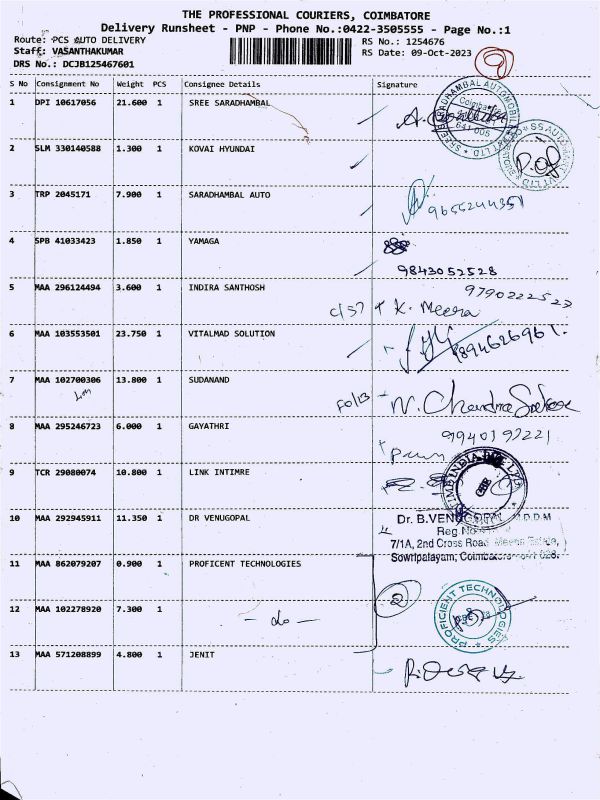 THE PROFESSIONAL COURIERS, COIMBATORE
Delivery Runsheet - PNP - Phone No.:0422-3505555 - Page No.:1
Route: PCS AUTO DELIVERY
RS No.: 1254676
Staff: VASANTHAKUMAR
RS Date: 09-Oct-2023
9
DRS No.: DCJB125467601
S No Consignment No Weight PCS Consignee Details Signature
1 DPI 10617056 21.600 1 SREE SARADHAMBAL
2 SLM 330140588 1.300 1 KOVAI HYUNDAI
3 TRP 2045171 7.900 1 SARADHAMBAL AUTO
9655244351
4 SPB 41033423 1.850 1 YAMAGA
9843052528
5 MAA 296124494 3.600 1 INDIRA SANTHOSH
9790222523
K. Meera
6 MAA 103553501 23.750 1 VITALMAD SOLUTION
7 MAA 102700306 13.800 1 SUDANAND
8 MAA 295246723 6.000 1 GAYATHRI
9940192221
9 TCR 29080074 10.800 1 LINK INTIMRE
10 MAA 292945911 11.350 1 DR VENUGOPAL
Dr. B.VENUGOPAL
Reg.No
7/1A, 2nd Cross Road
Sowripalayam, Coimbatore
11 MAA 862079207 0.900 1 PROFICENT TECHNOLOGIES
2
PROFICIENT TECHNOLOGIES
12 MAA 102278920 7.300 1 - do -
13 MAA 571208899 4.800 1 JENIT